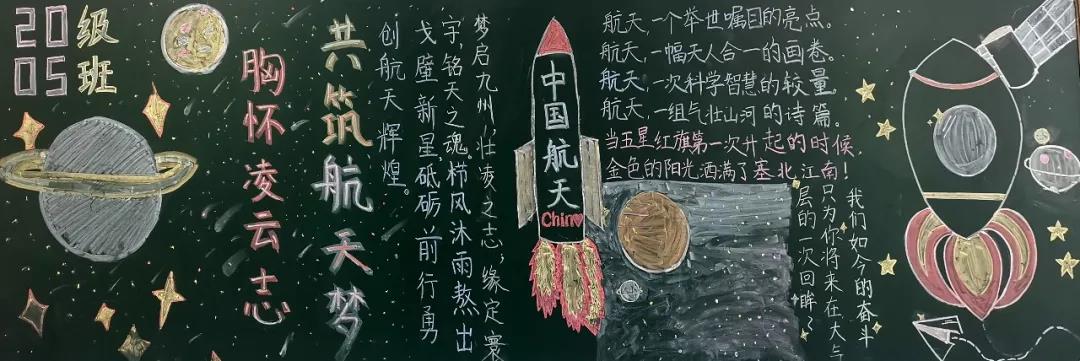 20级
05班
胸怀凌云志
共筑航天梦
梦启九州,壮凌之志,缘定寰
宇,铭天之魂。栉风沐雨熬出
戈壁新星,砥砺前行勇
创航天辉煌。
中国航天
China
航天,一个举世嘱目的亮点。
航天,一幅天人合一的画卷。
航天,一次科学智慧的较量
航天,一组气壮山河的诗篇。
当五星红旗第一次升起的时候,
金色的阳光洒满了塞北江南!
我们如今的奋斗
只为你将来在大气
层的一次回眸~